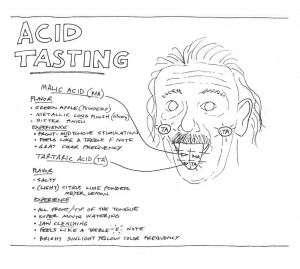 ACID
TASTING
MALIC ACID (MA)
FLAVOR
• GREEN APPLE (POWDERY)
• METALLIC LONG FINISH
• BITTER FINISH
EXPERIENCE
• FRONT-MIDTONGUE STIMULATION
• FEELS LIKE A TREBLE F NOTE
• GRAY COLOR FREQUENCY
TARTARIC ACID (TA)
FLAVOR
• SALTY
• (LIGHT) CITRUS LIME POWDER
MEYER LEMON
EXPERIENCE
• ALL FRONT/TIP OF THE TONGUE
• SUPER MOUTH WATERING
• JAW CLENCHING
• FEELS LIKE A TREBLE E NOTE
• BRIGHT SUNLIGHT YELLOW COLOR FREQUENCY
TA
TA
MA
TA